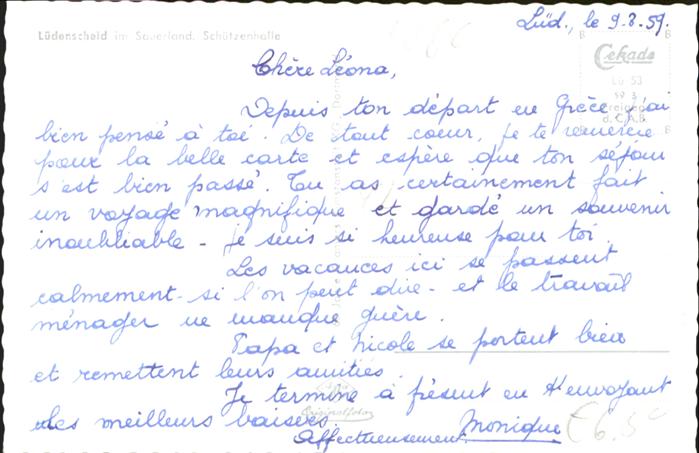 Lüd., le 9.8.59.
Lüdenscheid im Sauerland. Schützenhalle
Cekade
Lü 53
Chère Léona,
Depuis ton départ en Grèce, j'ai
bien pensé à toi. De tout coeur, je te remercie
pour la belle carte et espère que ton séjour
s'est bien passé. Tu as certainement fait
un voyage magnifique et gardé un souvenir
inoubliable - Je suis si heureuse pour toi.
Les vacances ici se passent
calmement - si l'on peut dire - et le travail
ménager ne manque guère.
Papa et Nicole se portent bien
et remettent leurs amitiés.
Je termine à présent en t'envoyant
mes meilleurs baisers.
Originalfoto
Affectueusement. Monique